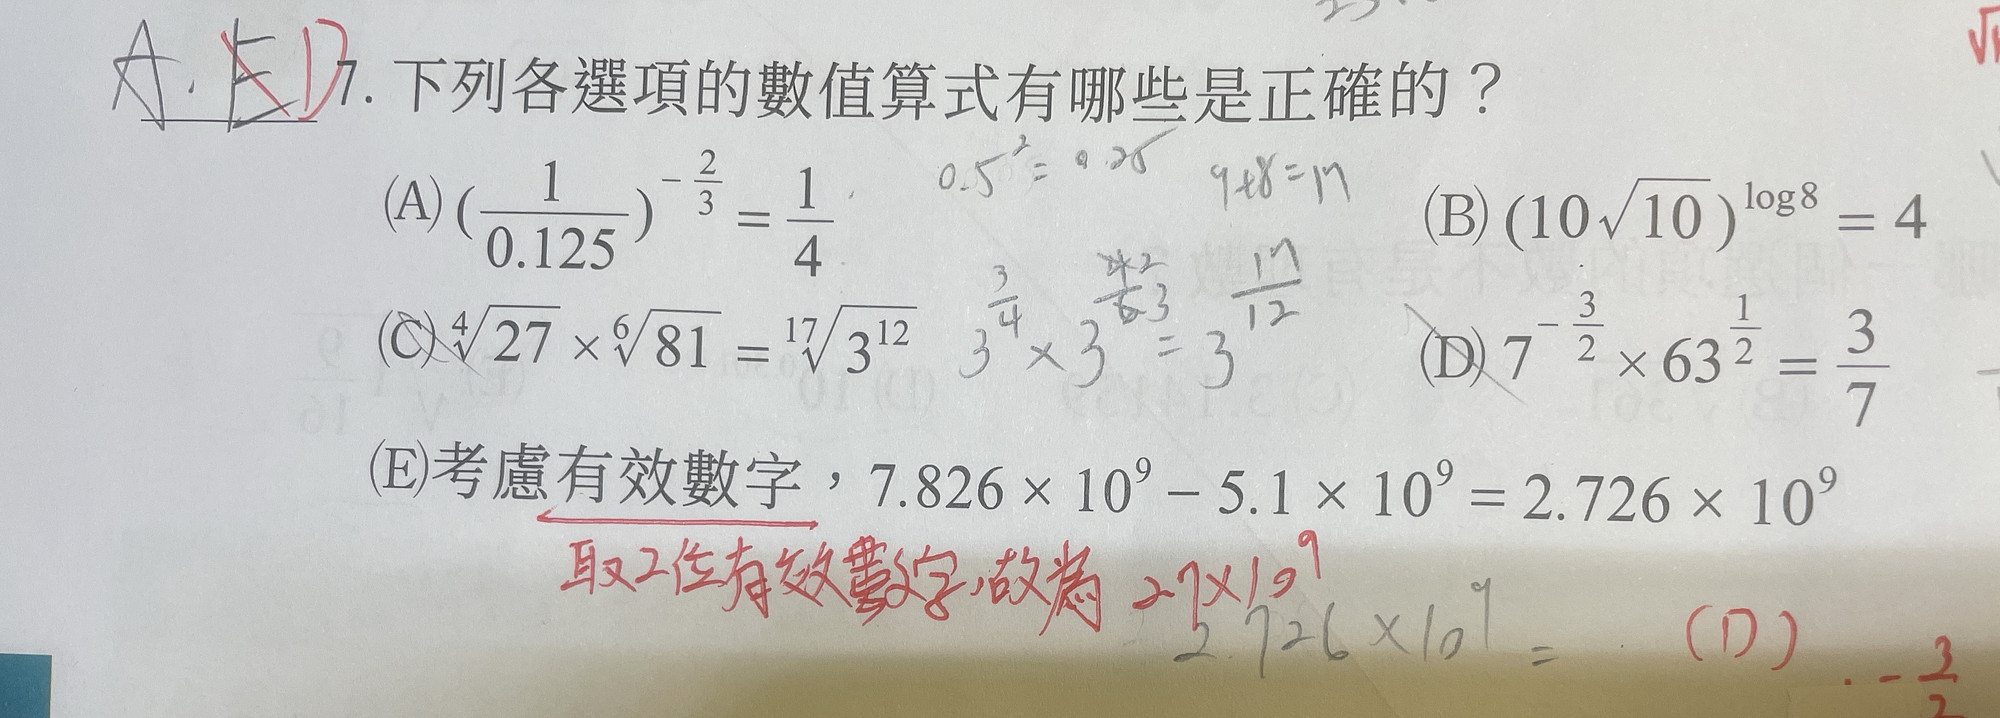 A. E D 7. 下列各選項的數值算式有哪些是正確的？
0.5² = 0.25 9+8=17
(A) (1/0.125)^(-2/3) = 1/4 (B) (10√10)^(log8) = 4
(C) ⁴√27 × ⁶√81 = ¹⁷√3¹² 3^(3/4) × 3^(4 2/6 3) = 3^(17/12) (D) 7^(-3/2) × 63^(1/2) = 3/7
(E)考慮有效數字，7.826 × 10⁹ − 5.1 × 10⁹ = 2.726 × 10⁹
取2位有效數字,故為 27×10⁹
2.726×10⁹ = (D)
-3/2